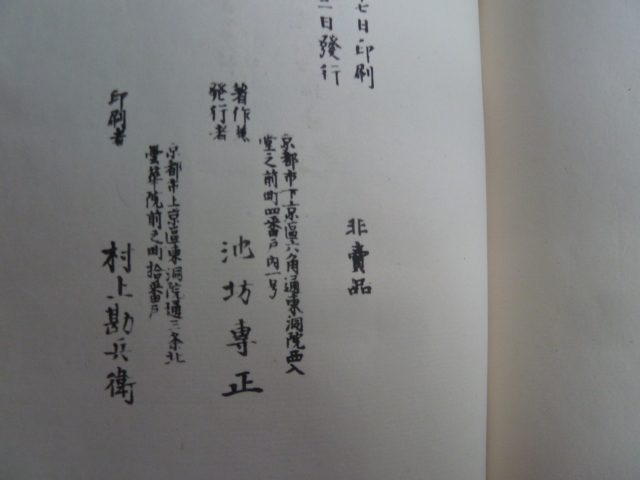 七日印刷
一日發行
非賣品
京都市下京區六角通東洞院西入
堂之前町四番戶內一号
著作兼
發行者
池坊專正
京都市上京區東洞院通三条北
曇華院前之町拾番戶
印刷者
村上勘兵衛